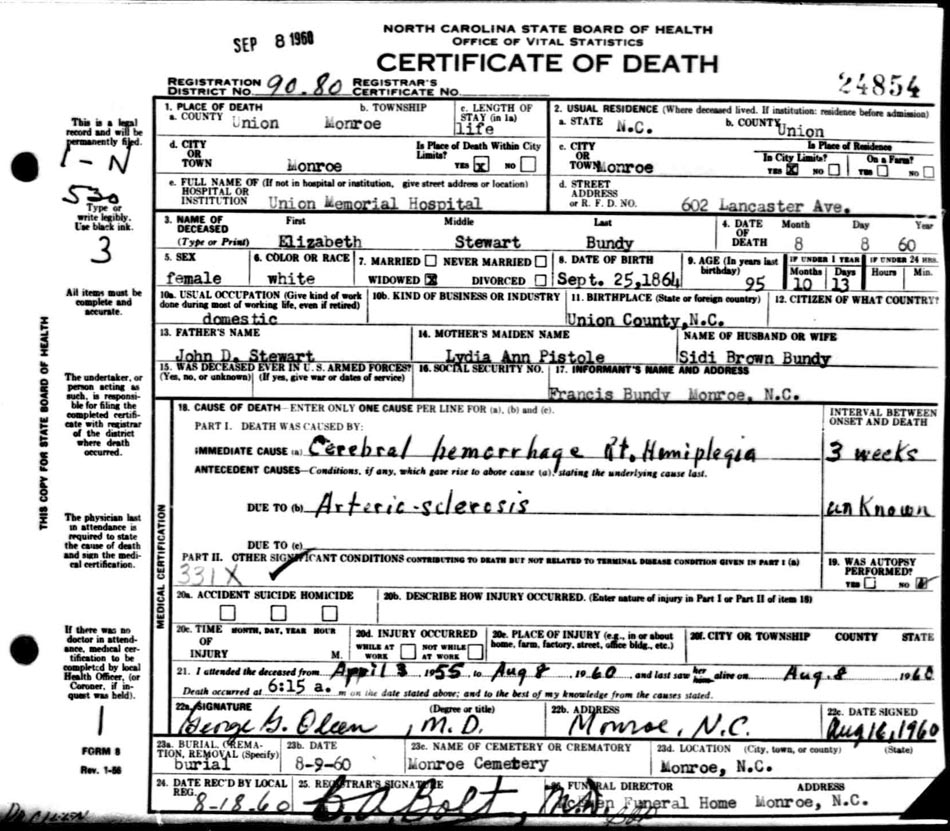 SEP 8 1960
NORTH CAROLINA STATE BOARD OF HEALTH
OFFICE OF VITAL STATISTICS
CERTIFICATE OF DEATH
REGISTRATION DISTRICT NO. 90-80 REGISTRAR'S CERTIFICATE NO.
24854
This is a legal record and will be permanently filed.
1-N
530
Type or write legibly. Use black ink.
3
All items must be complete and accurate.
The undertaker, or person acting as such, is responsible for filing the completed certificate with registrar of the district where death occurred.
The physician last in attendance is required to state the cause of death and sign the medical certification.
If there was no doctor in attendance, medical certification to be completed by local Health Officer, (or Coroner, if inquest was held).
1
FORM 8
Rev. 1-56
THIS COPY FOR STATE BOARD OF HEALTH
1. PLACE OF DEATH
a. COUNTY Union
b. TOWNSHIP Monroe
c. LENGTH OF STAY (in 1a) life
2. USUAL RESIDENCE (Where deceased lived. If institution: residence before admission)
a. STATE N.C.
b. COUNTY Union
d. CITY OR TOWN Monroe
Is Place of Death Within City Limits? YES X NO
c. CITY OR TOWN Monroe
Is Place of Residence
In City Limits? YES X NO
On a Farm? YES NO
e. FULL NAME OF (If not in hospital or institution, give street address or location)
HOSPITAL OR INSTITUTION Union Memorial Hospital
d. STREET ADDRESS or R. F. D. NO. 602 Lancaster Ave.
3. NAME OF DECEASED (Type or Print)
First Elizabeth
Middle Stewart
Last Bundy
4. DATE OF DEATH
Month 8 Day 8 Year 60
5. SEX female
6. COLOR OR RACE white
7. MARRIED NEVER MARRIED
WIDOWED X DIVORCED
8. DATE OF BIRTH Sept. 25,1864
9. AGE (In years last birthday) 95
IF UNDER 1 YEAR Months 10 Days 13
IF UNDER 24 HRS. Hours Min.
10a. USUAL OCCUPATION (Give kind of work done during most of working life, even if retired) domestic
10b. KIND OF BUSINESS OR INDUSTRY
11. BIRTHPLACE (State or foreign country) Union County,N.C.
12. CITIZEN OF WHAT COUNTRY?
13. FATHER'S NAME John D. Stewart
14. MOTHER'S MAIDEN NAME Lydia Ann Pistole
NAME OF HUSBAND OR WIFE Sidi Brown Bundy
15. WAS DECEASED EVER IN U. S. ARMED FORCES? (Yes, no, or unknown) (If yes, give war or dates of service)
16. SOCIAL SECURITY NO.
17. INFORMANT'S NAME AND ADDRESS Francis Bundy Monroe, N.C.
MEDICAL CERTIFICATION
18. CAUSE OF DEATH—ENTER ONLY ONE CAUSE PER LINE FOR (a), (b) and (c).
INTERVAL BETWEEN ONSET AND DEATH
PART I. DEATH WAS CAUSED BY:
IMMEDIATE CAUSE (a) Cerebral hemorrhage Rt. Hemiplegia 3 weeks
ANTECEDENT CAUSES—Conditions, if any, which gave rise to above cause (a), stating the underlying cause last.
DUE TO (b) Arteric-sclerosis unknown
DUE TO (c)
PART II. OTHER SIGNIFICANT CONDITIONS CONTRIBUTING TO DEATH BUT NOT RELATED TO TERMINAL DISEASE CONDITION GIVEN IN PART I (a)
331X
19. WAS AUTOPSY PERFORMED? YES NO
20a. ACCIDENT SUICIDE HOMICIDE
20b. DESCRIBE HOW INJURY OCCURRED. (Enter nature of injury in Part I or Part II of item 18)
20c. TIME OF INJURY MONTH, DAY, YEAR HOUR M.
20d. INJURY OCCURRED WHILE AT WORK NOT WHILE AT WORK
20e. PLACE OF INJURY (e.g., in or about home, farm, factory, street, office bldg., etc.)
20f. CITY OR TOWNSHIP COUNTY STATE
21. I attended the deceased from April 3 1955 to Aug 8 1960 and last saw her him alive on Aug. 8 1960
Death occurred at 6:15 a. m on the date stated above; and to the best of my knowledge from the causes stated.
22a. SIGNATURE (Degree or title) M.D.
22b. ADDRESS Monroe, N.C.
22c. DATE SIGNED Aug 16, 1960
23a. BURIAL, CREMATION, REMOVAL (Specify) burial
23b. DATE 8-9-60
23c. NAME OF CEMETERY OR CREMATORY Monroe Cemetery
23d. LOCATION (City, town, or county) (State) Monroe, N.C.
24. DATE REC'D BY LOCAL REG. 8-18-60
25. REGISTRAR'S SIGNATURE C. A. Bolt, M.D.
26. FUNERAL DIRECTOR ADDRESS
Funeral Home Monroe, N.C.